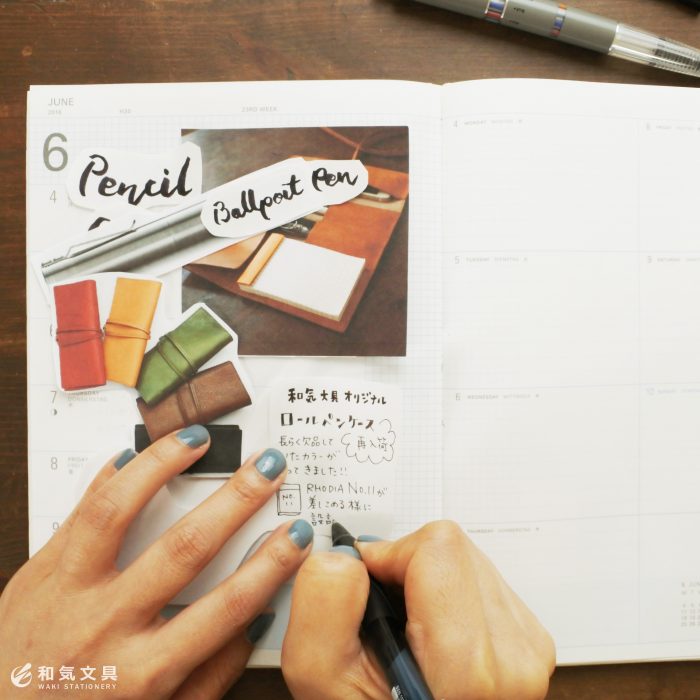 JUNE
2018
H30
23RD WEEK
6
Pencil
Ballpoint Pen
4
7
THURSDAY
DONNERSTAG
8
9
和気文具オリジナル
ロールペンケース
再入荷
長らく欠品して
いたカラーが
ってきました!!
NO.
11
RHODIA No.11が
差しこめる様に
設計
4 MONDAY
5 TUESDAY DIENSTAG
6 WEDNESDAY MITTWOCH
THURSDAY DONNERSTAG
8 FRIDAY
9
10
和気文具
WAKI STATIONERY